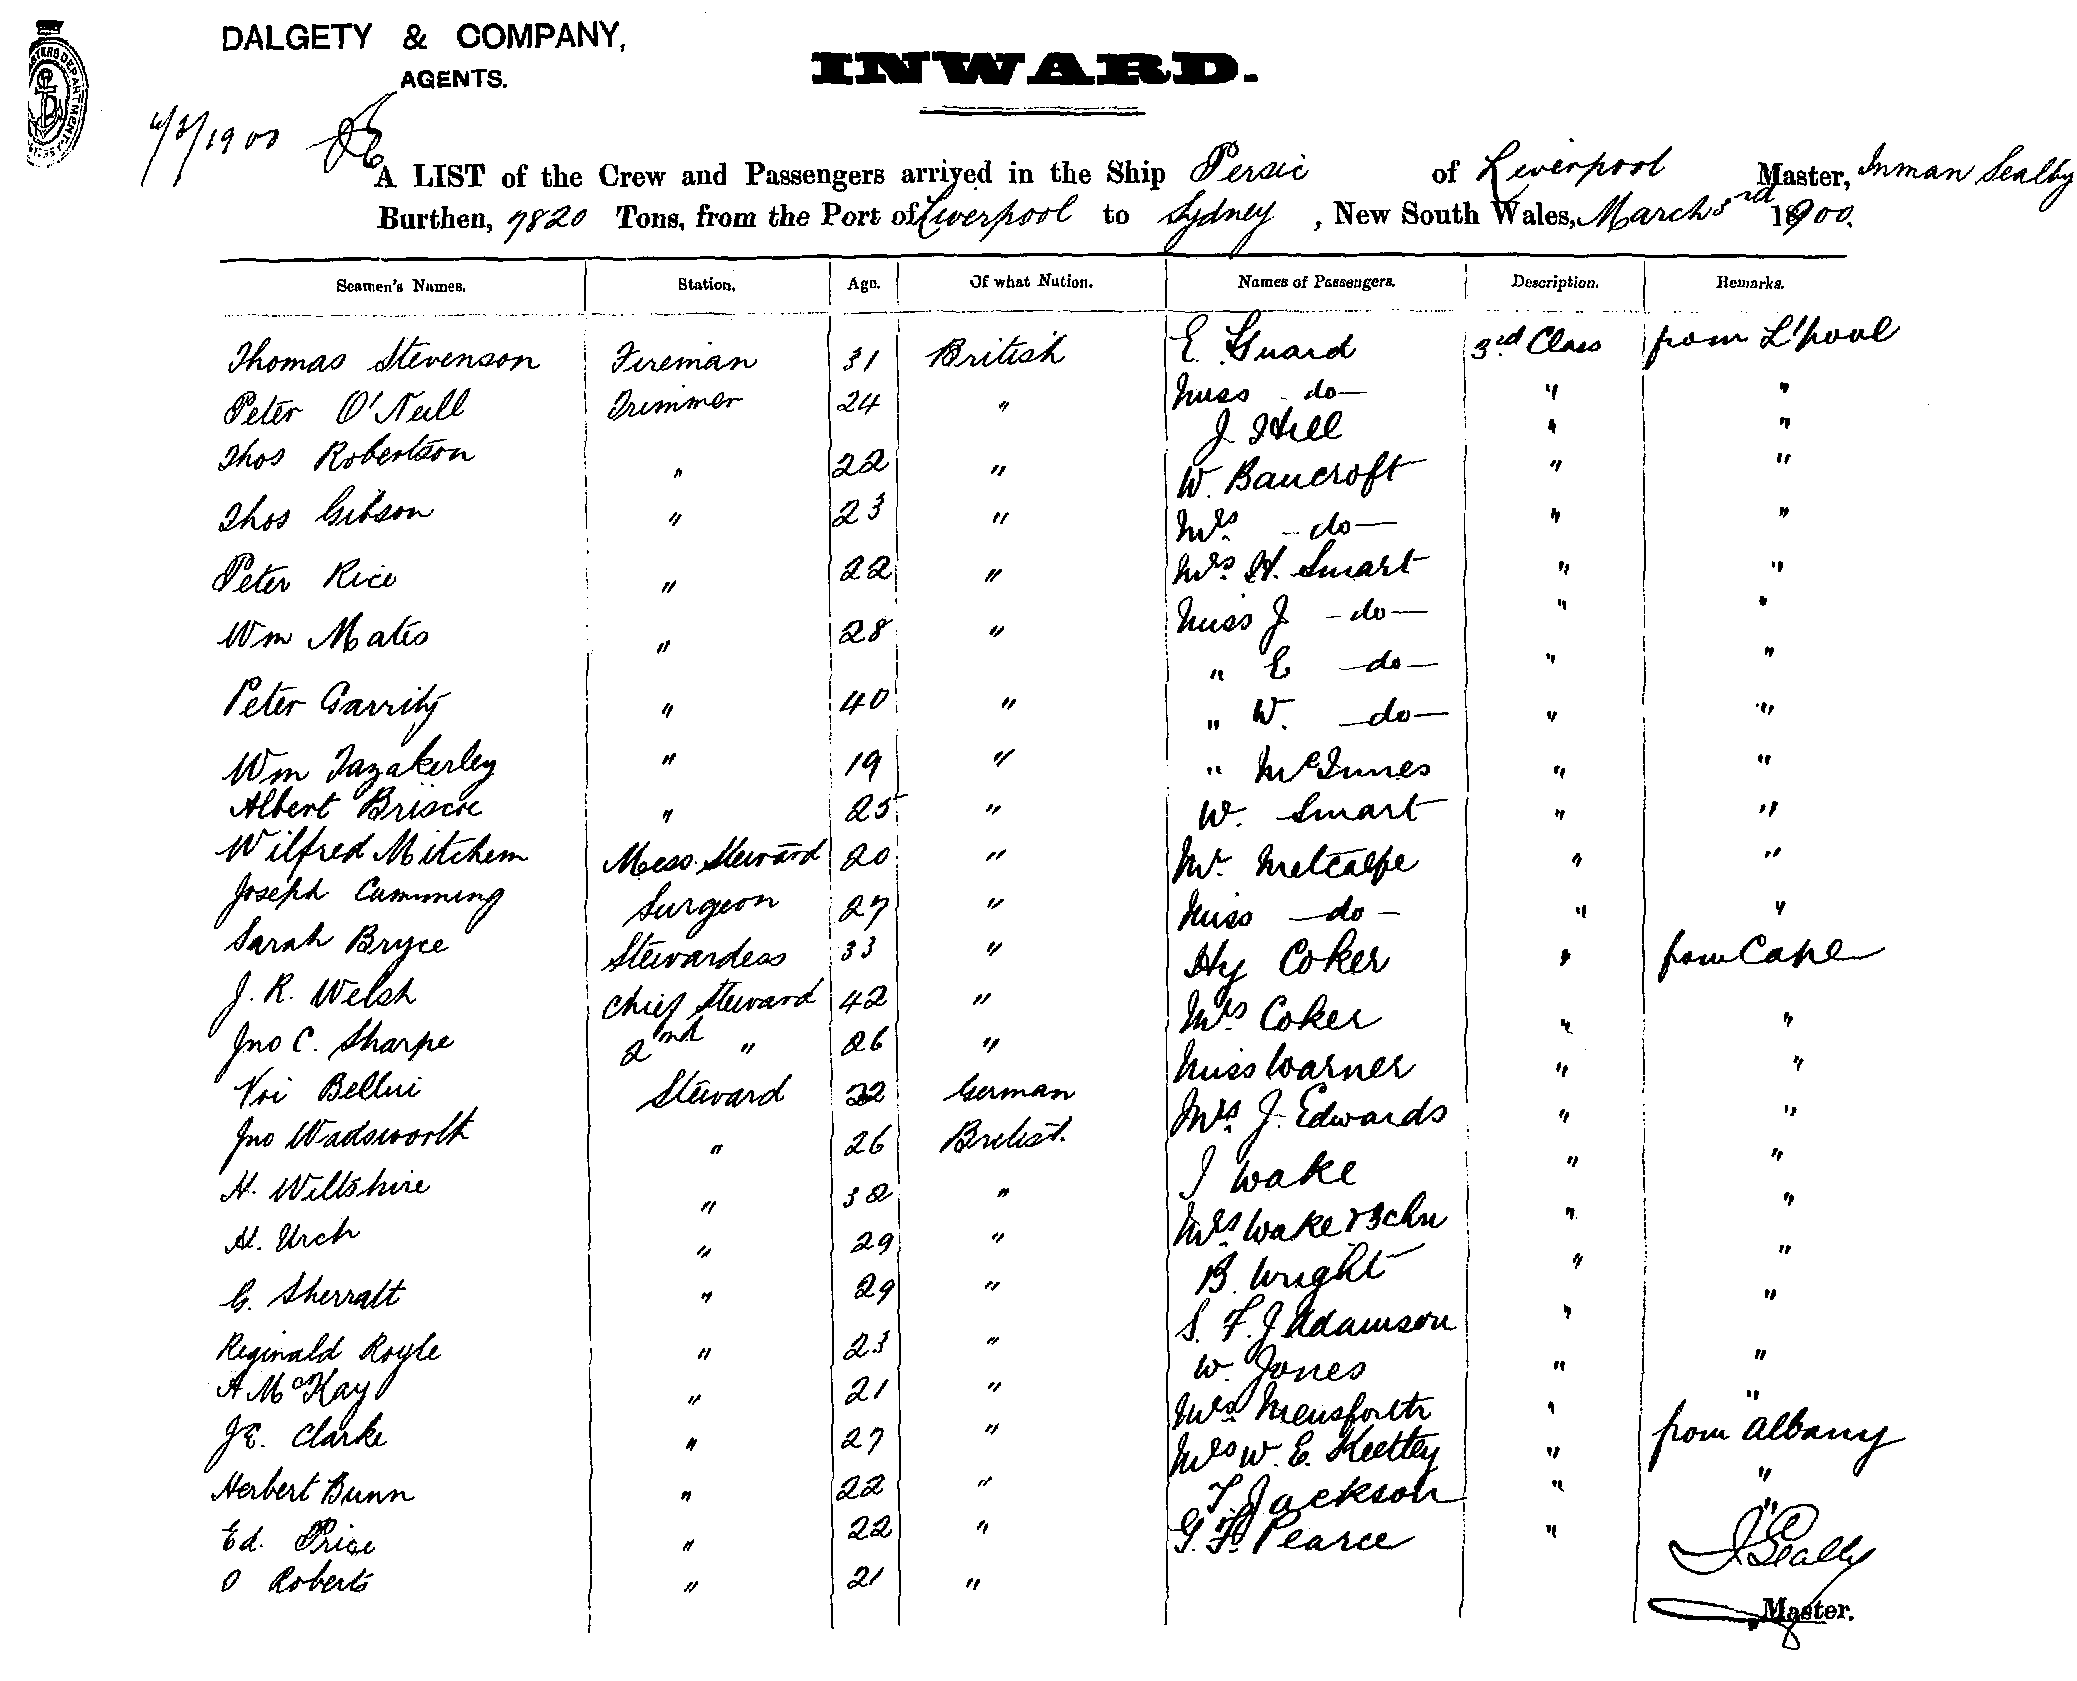 DALGETY & COMPANY,
AGENTS.
INWARD.
/1900
A LIST of the Crew and Passengers arrived in the Ship Persic of Liverpool Master, Inman Sealby
Burthen, 7820 Tons, from the Port of Liverpool to Sydney, New South Wales, March 3rd 1900.
Seamen's Names. Station. Age. Of what Nation. Names of Passengers. Description. Remarks.
Thomas Stevenson Fireman 31 British E. Guard 3rd Class from L'pool
Peter O'Neill Trimmer 24 " Miss - do - " "
J. Hill " "
Thos Robertson " 22 " W. Bancroft " "
Thos Gibson " 23 " Mrs. - do - " "
Peter Rice " 22 " Mrs. H. Smart " "
Wm Mates " 28 " Miss J - do - " "
" E - do - " "
Peter Garrity " 40 " " W. - do - " "
Wm Fazakerley " 19 " " McInnes " "
Albert Briscoe " 25 " W. Smart " "
Wilfred Mitchem Mess. Steward 20 " Mr Metcalfe " "
Joseph Cumming Surgeon 27 " Miss - do - " "
Sarah Bryce Stewardess 33 " Hy Coker " from Cape
J. R. Welsh Chief Steward 42 " Mrs Coker " "
Jno C. Sharpe 2nd " 26 " Miss Warner " "
Bellini Steward 22 German Mrs. J. Edwards " "
Jno Wadsworth " 26 British J Wake " "
H. Wiltshire " 32 " Mrs. Wake & 3 chn " "
H. Urch " 29 " B. Wright " "
G. Sherratt " 29 " S. F. J Adamson " "
Reginald Royle " 23 " W. Jones " "
A McKay " 21 " Mrs. Mensforth " "
J E. Clarke " 27 " Mrs W. E. Kettley " from Albany
Herbert Bunn " 22 " T. Jackson " "
Ed. Price " 22 " G. F. Pearce " "
O Roberts " 21 "
I Sealby
Master.